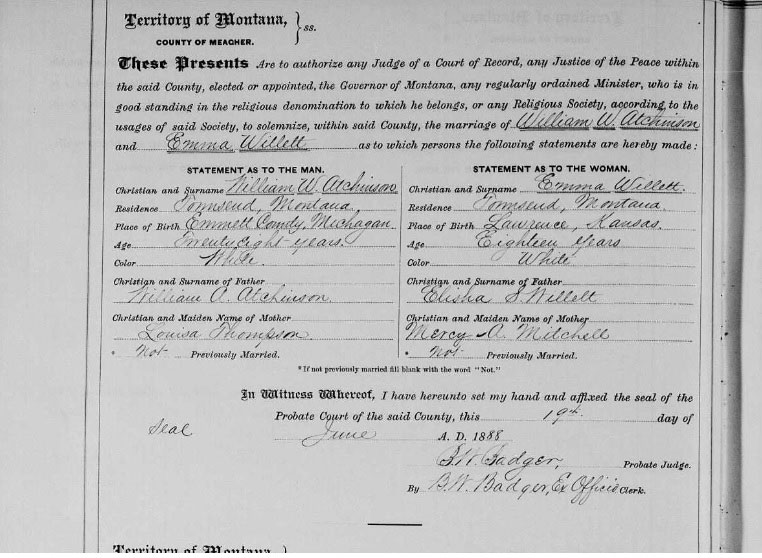 Territory of Montana,
COUNTY OF MEAGHER. } ss.
These Presents Are to authorize any Judge of a Court of Record, any Justice of the Peace within
the said County, elected or appointed, the Governor of Montana, any regularly ordained Minister, who is in
good standing in the religious denomination to which he belongs, or any Religious Society, according to the
usages of said Society, to solemnize, within said County, the marriage of William W. Atchinson
and Emma Willett as to which persons the following statements are hereby made:
STATEMENT AS TO THE MAN.
Christian and Surname William W. Atchinson
Residence Townsend, Montana
Place of Birth Emmett Comdy, Michagan.
Age Twenty eight years.
Color White.
Christian and Surname of Father
William A. Atchinson.
Christian and Maiden Name of Mother
Louisa Thompson.
* Not Previously Married.
STATEMENT AS TO THE WOMAN.
Christian and Surname Emma Willett.
Residence Townsend, Montana.
Place of Birth Lawrence, Kansas.
Age Eighteen years
Color White
Christian and Surname of Father
Elisha S. Willett
Christian and Maiden Name of Mother
Mercy A. Mitchell
* Not Previously Married.
*If not previously married fill blank with the word "Not."
In Witness Whereof, I have hereunto set my hand and affixed the seal of the
Probate Court of the said County, this 19th day of
Seal June A. D. 1888
B. W. Badger, Probate Judge.
By B. W. Badger, Ex Officio Clerk.
Territory of Montana,